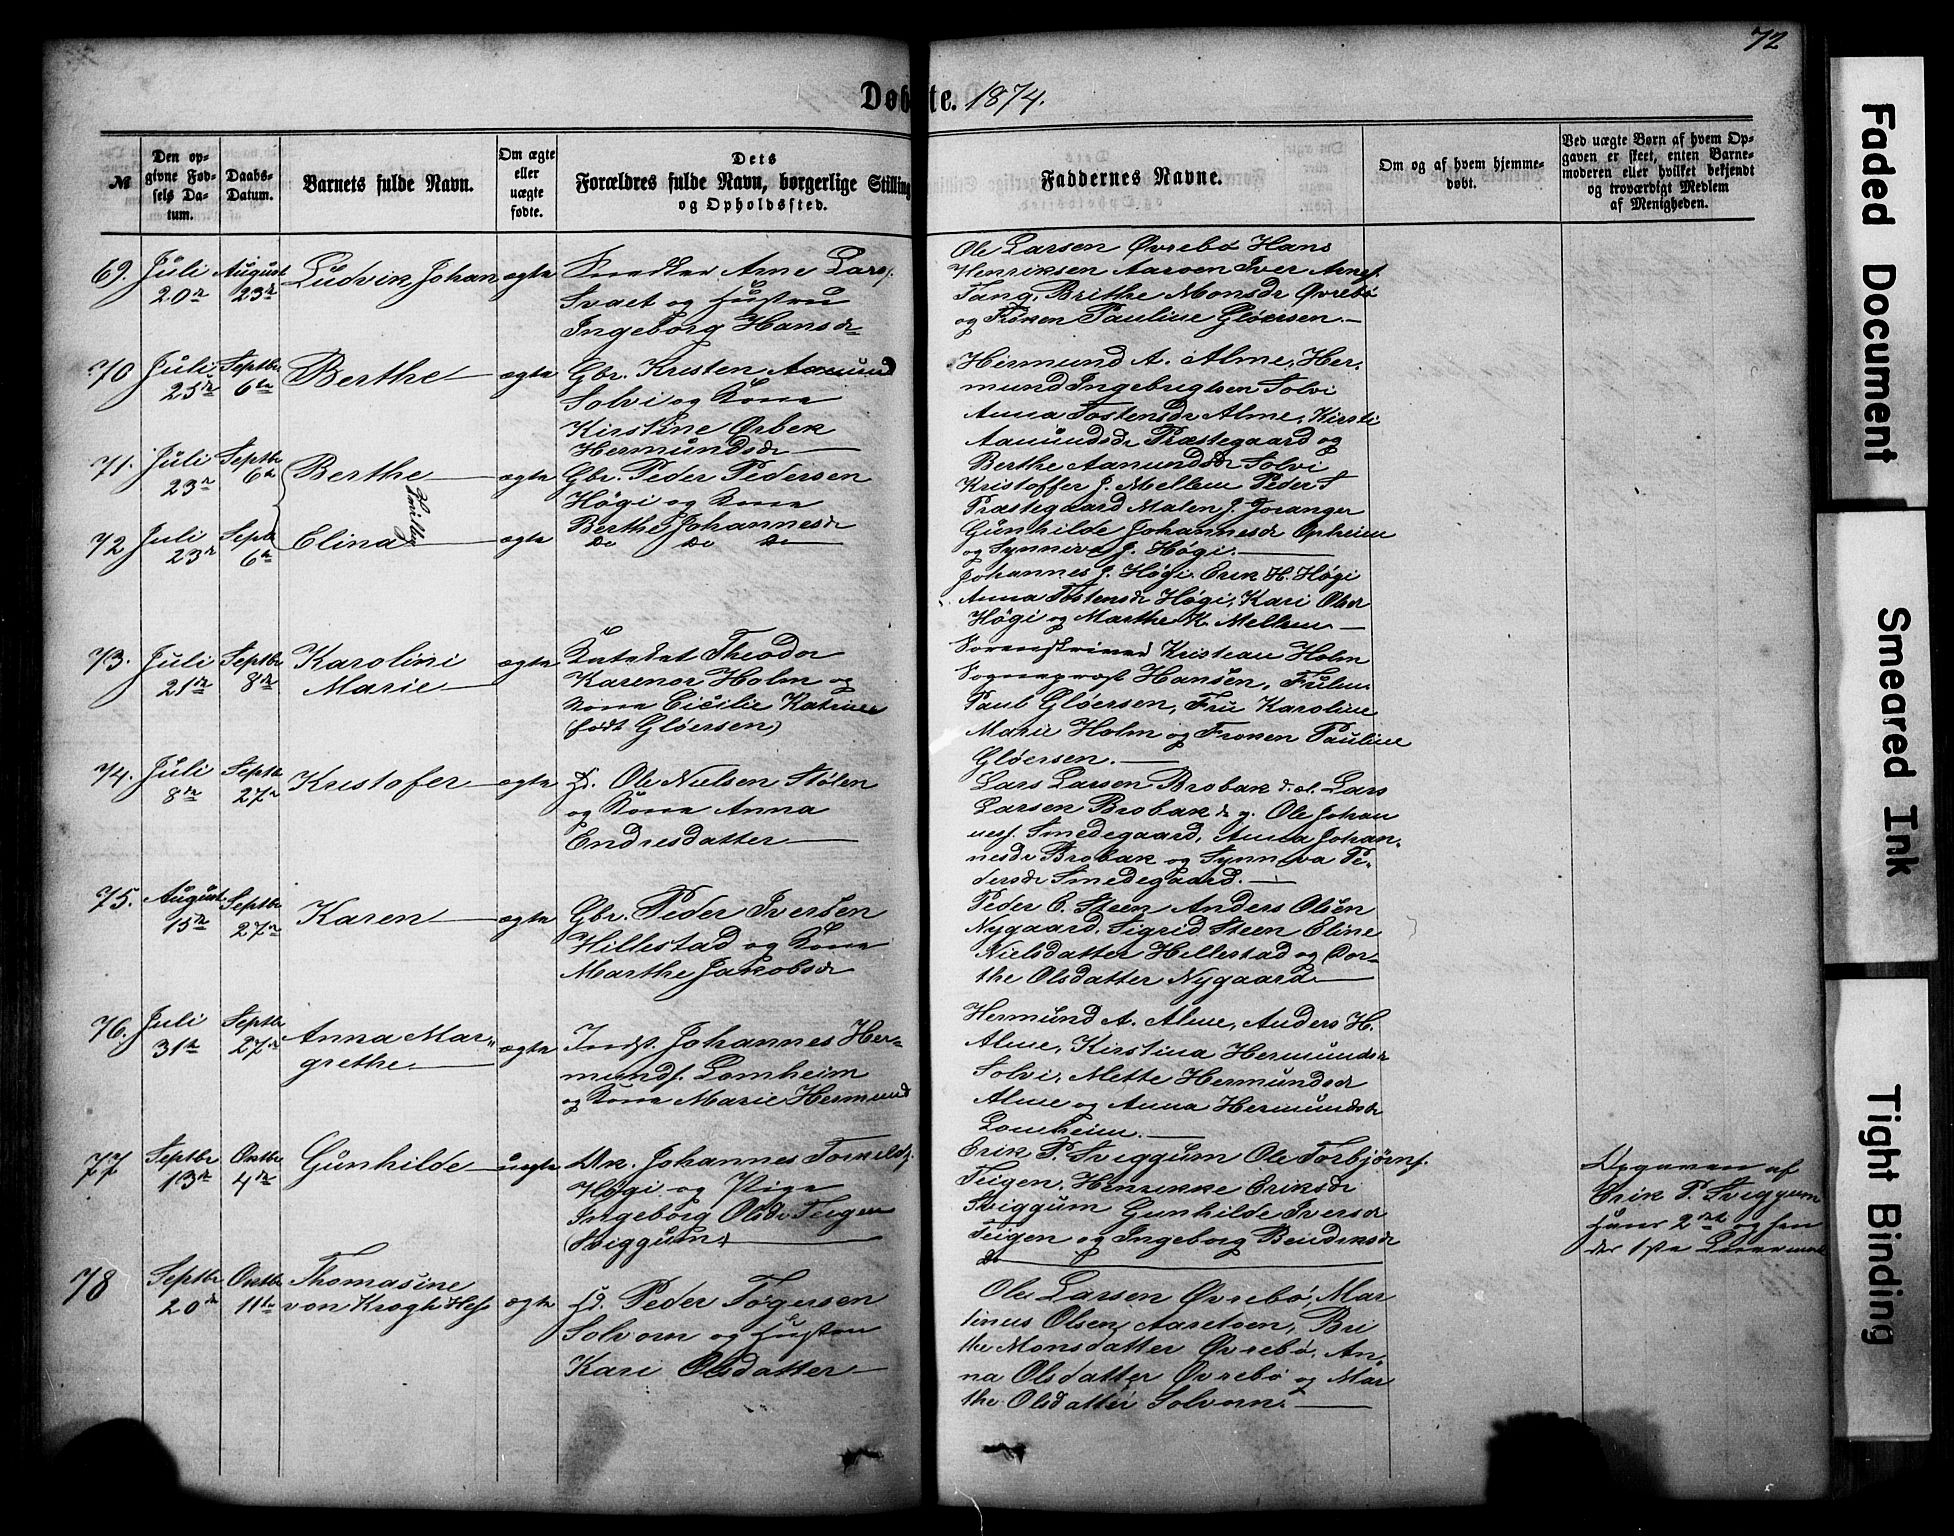 72
Døbte. 1874.
№
Den opgivne Fødsels Datum.
Daabs-Datum.
Barnets fulde Navn.
Om ægte eller uægte fødte.
Dets Forældres fulde Navn, borgerlige Stilling og Opholdssted.
Faddernes Navne.
Om og af hvem hjemmedøbt.
Ved uægte Børn af hvem Opgaven er skeet, enten Barnemoderen eller hvilket bekjendt og troværdigt Medlem af Menigheden.
69. Juli 20de August 23de Ludvik Johan ægte
Snedker Arne Lars.
Svaet og Hustru
Ingeborg Hansdr
Ole Larsen Øvrebø Hans
Henriksen Aaroen Iver Arnes.
Tang, Brithe Monsdr Øvrebø
og Frøken Pauline Gløersen.—
70 Juli 25de Septbr 6te Berthe ægte
Gbr. Kristen Aamund
Solvi og Kone
Kirstine Ørbek
Hermundsdr
Hermund A. Alme, Her-
mund Ingebrigtsen Solvi
Anna Tostensdr Alme, Kirsti
Aamundsdr Præstegaard og
Berthe Aamundsdr Solvi
71. Juli 23de Septbr 6te Berthe ægte
Tvilling
Gbr. Peder Pedersen
Høgi og Kone
Berthe Johannesdr
Kristoffer J. Mellem Peder T
Præstegaard Malen J. Joranger
Gunhilde Johannesdr Opheim
og Synneva J. Høgi.—
72 Juli 23de Septb 6te Elina ægte
Do Do Do
Johannes J. Høgi. Erik H. Høgi
Anna Tostensdr Høgi, Kari Olsdr
Høgi og Marthe K. Mellem—
73. Juli 21de Septbr 8de Karolini
Marie ægte
Kateket Theodor
Karenor Holm og
Kone Cicilie Katrine
(født Gløersen)
Sorenskriver Kristean Holm
Sogneprest Hansen,
Paul Gløersen, Fru Karoline
Marie Holm og Frøken Pauline
Gløersen.—
74. Juli 8de Septbr 27de Kristofer ægte
Hd. Ole Nielsen Stølen
og Kone Anna
Endresdatter
Lars Larsen Brobak d. æ. Lars
Larsen Brobak d. y. Ole Johan
nes. Smedegaard, Anna Johan-
nesdr Brobak og Synneva Pe-
dersdr Smedegaard.—
75. August 15de Septbr 27de Karen ægte
Gbr. Peder Iversen
Hillestad og Kone
Marthe Jakobsdr
Peder E. Steen Anders Olsen
Nygaard. Sigrid Steen Eline
Nielsdatter Hellestad og Dor-
the Olsdatter Nygaard
76. Juli 31te Septbr 27de Anna Mar-
grethe ægte
Indst. Johannes Her-
munds. Lomheim
og Kone Marie Hermund
Hermund A. Alme, Anders H.
Alme, Kirstina Hermundsdr
Solvi, Mette Hermundsdr
Alme og Anna Hermundsdr
Lomheim.
77 Septbr 13de Oktbr 4de Gunhilde uægte
Uk. Johannes Torkilds.
Høgi og Pige
Ingeborg Olsdr Teigen
(Sviggum)
Erik P. Sviggum Ole Torbjørns.
Teigen. Henrikke Eriksdr
Sviggum Gunhilde Iversdr
Teigen og Ingeborg Bendiksdr
do
Opgaven af
Erik P. Sviggum
Hans 2det og hen
des 1ste Leiermaal
78 Septbr 20de Oktbr 11te Thomasine
von Krogh Hess ægte
Hd. Peder Tøgersen
Solvorn og Hustru
Kari Olsdatter
Ole Larsen Øvrebø, Mar
tinus Olsen Aaretoen, Bri
the Monsdatter Øvrebø. An-
na Olsdatter Øvrebø og Mar
the Olsdatter Solvorn.
Faded Document
Smeared Ink
Tight Binding